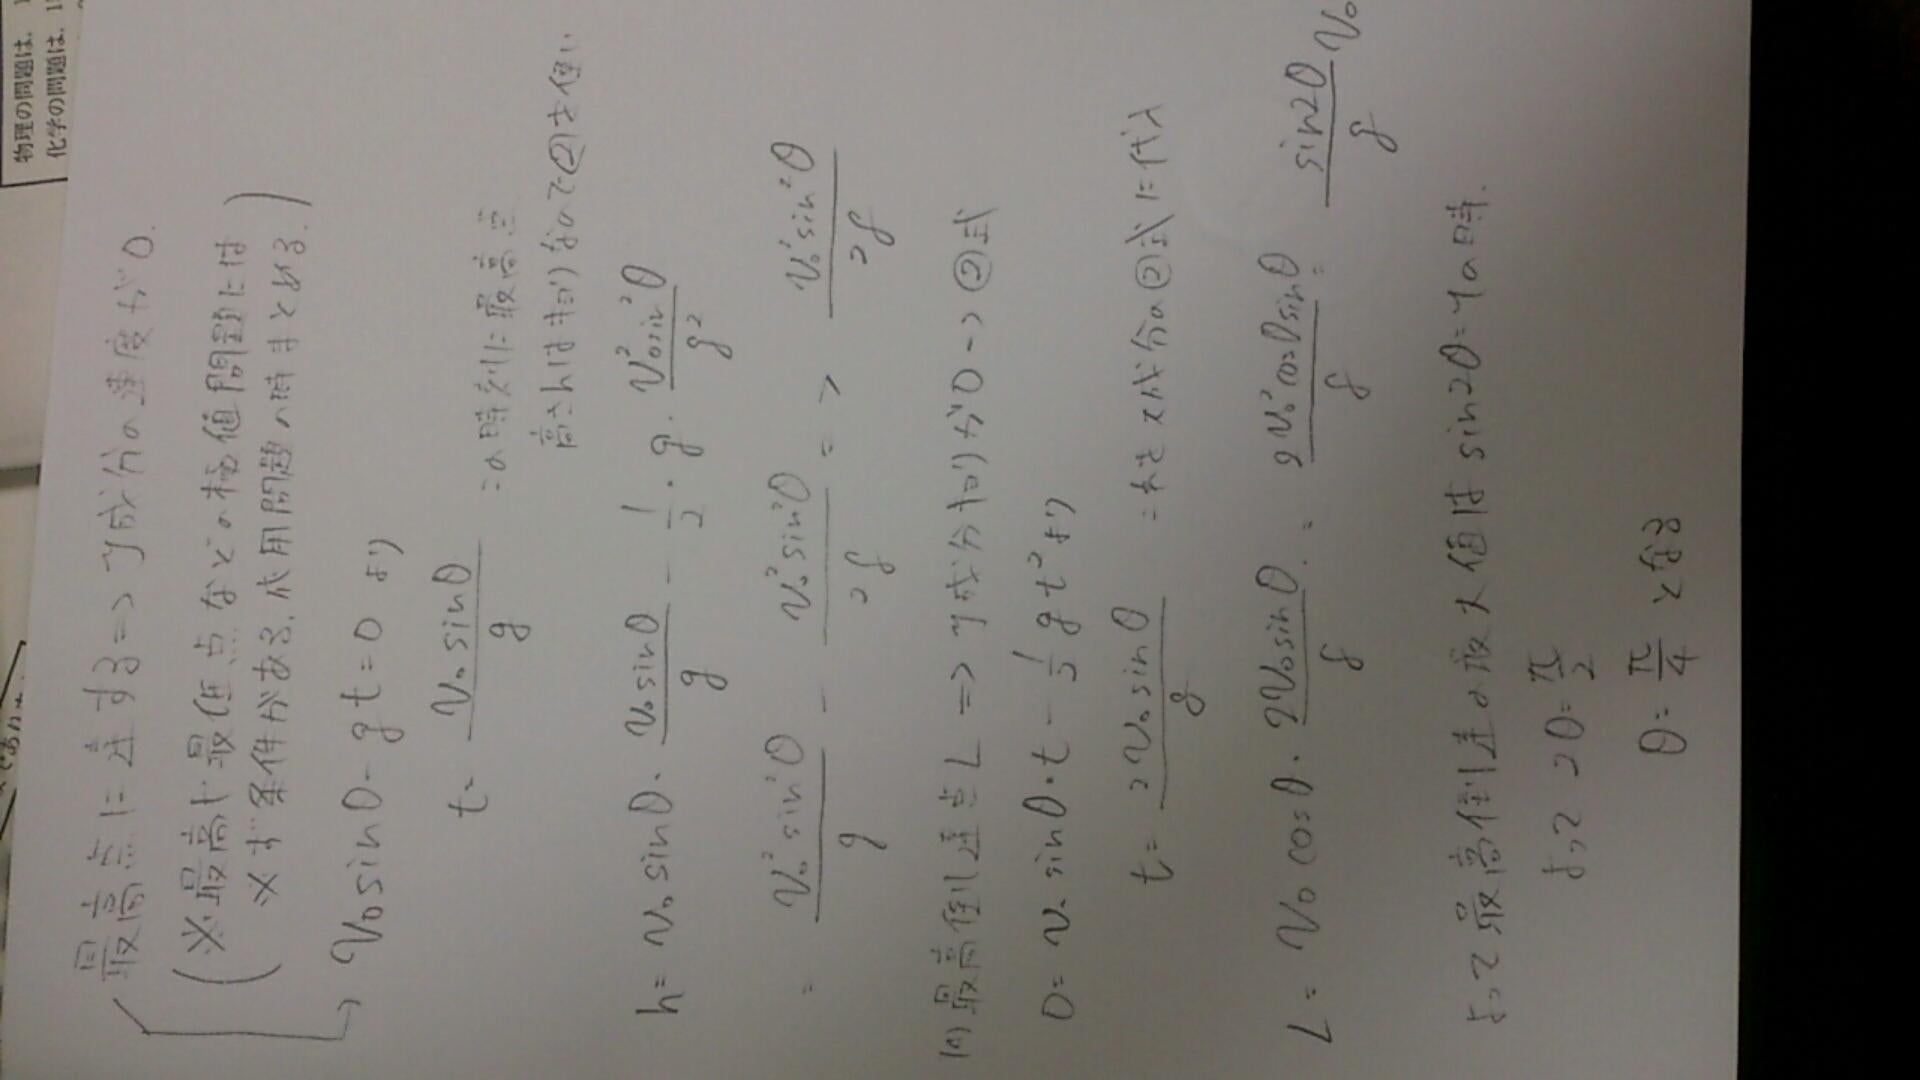 物理の問題は、1
化学の問題は、1
最高点に達する => y成分の速度が0.
(※最高・最低点などの極値問題には
必ず条件がある. 応用問題の時まとめる.)
→ V₀sinθ - gt = 0 より
t = V₀sinθ/g この時刻に最高点
高さhはキョリなので②を使い
h = V₀sinθ・V₀sinθ/g - 1/2・g・V₀²sin²θ/g²
= V₀²sin²θ/g - V₀²sin²θ/2g => V₀²sin²θ/2g
最高到達点L => y成分キョリが0 -> ②式
0 = V₀sinθ・t - 1/2gt² より
t = 2V₀sinθ/g これをx成分の②式に代入
L = V₀cosθ・2V₀sinθ/g = 2V₀²cosθsinθ/g = sin2θ/g V₀
よって最高到達の最大値は sin2θ=1の時.
よって 2θ=π/2
θ=π/4 となる